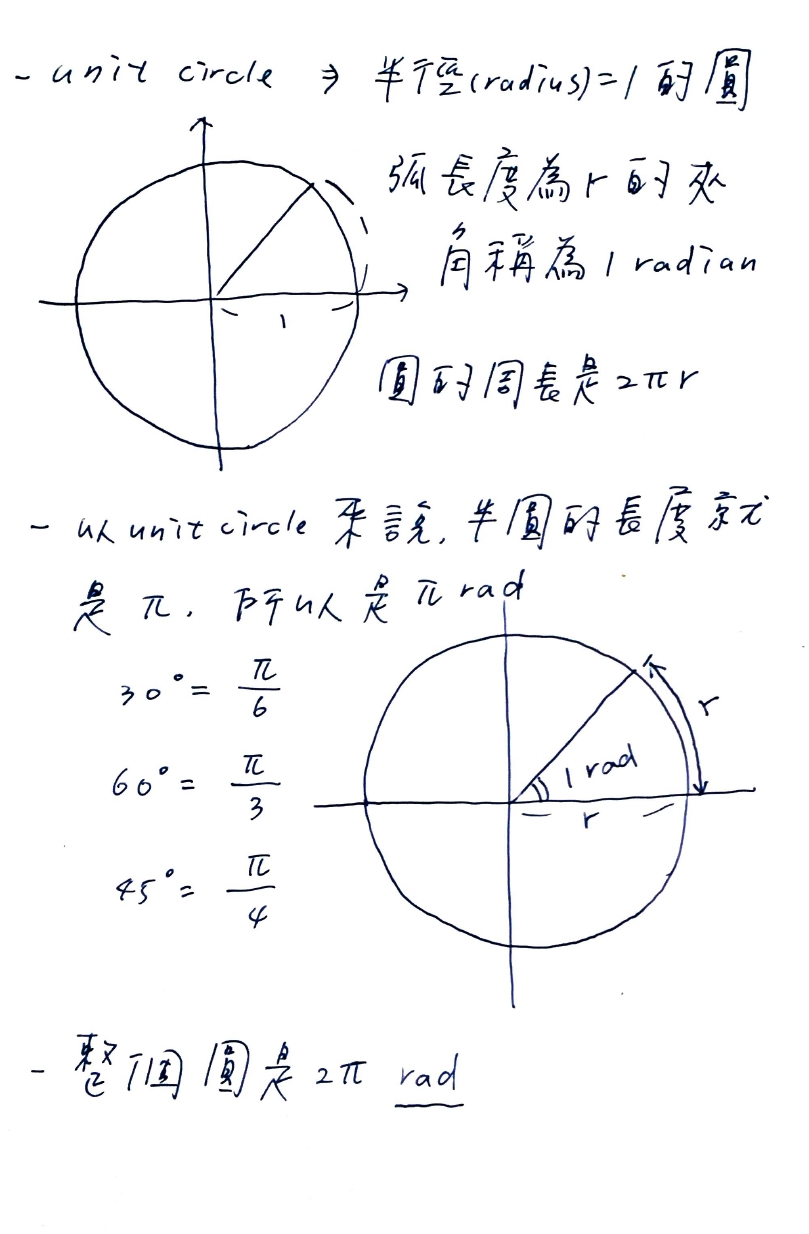 - unit circle ⇒ 半徑(radius)=1 的圓
弧長度為 r 的夾
角稱為 1 radian
1
圓的周長是 2πr
- 以 unit circle 來說, 半圓的長度就
是 π, 所以是 π rad
30°= π/6
60°= π/3
45°= π/4
r
1 rad
r
- 整個圓是 2π rad